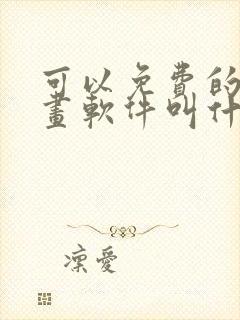 可以免费的
畫軟件叫什
凜愛